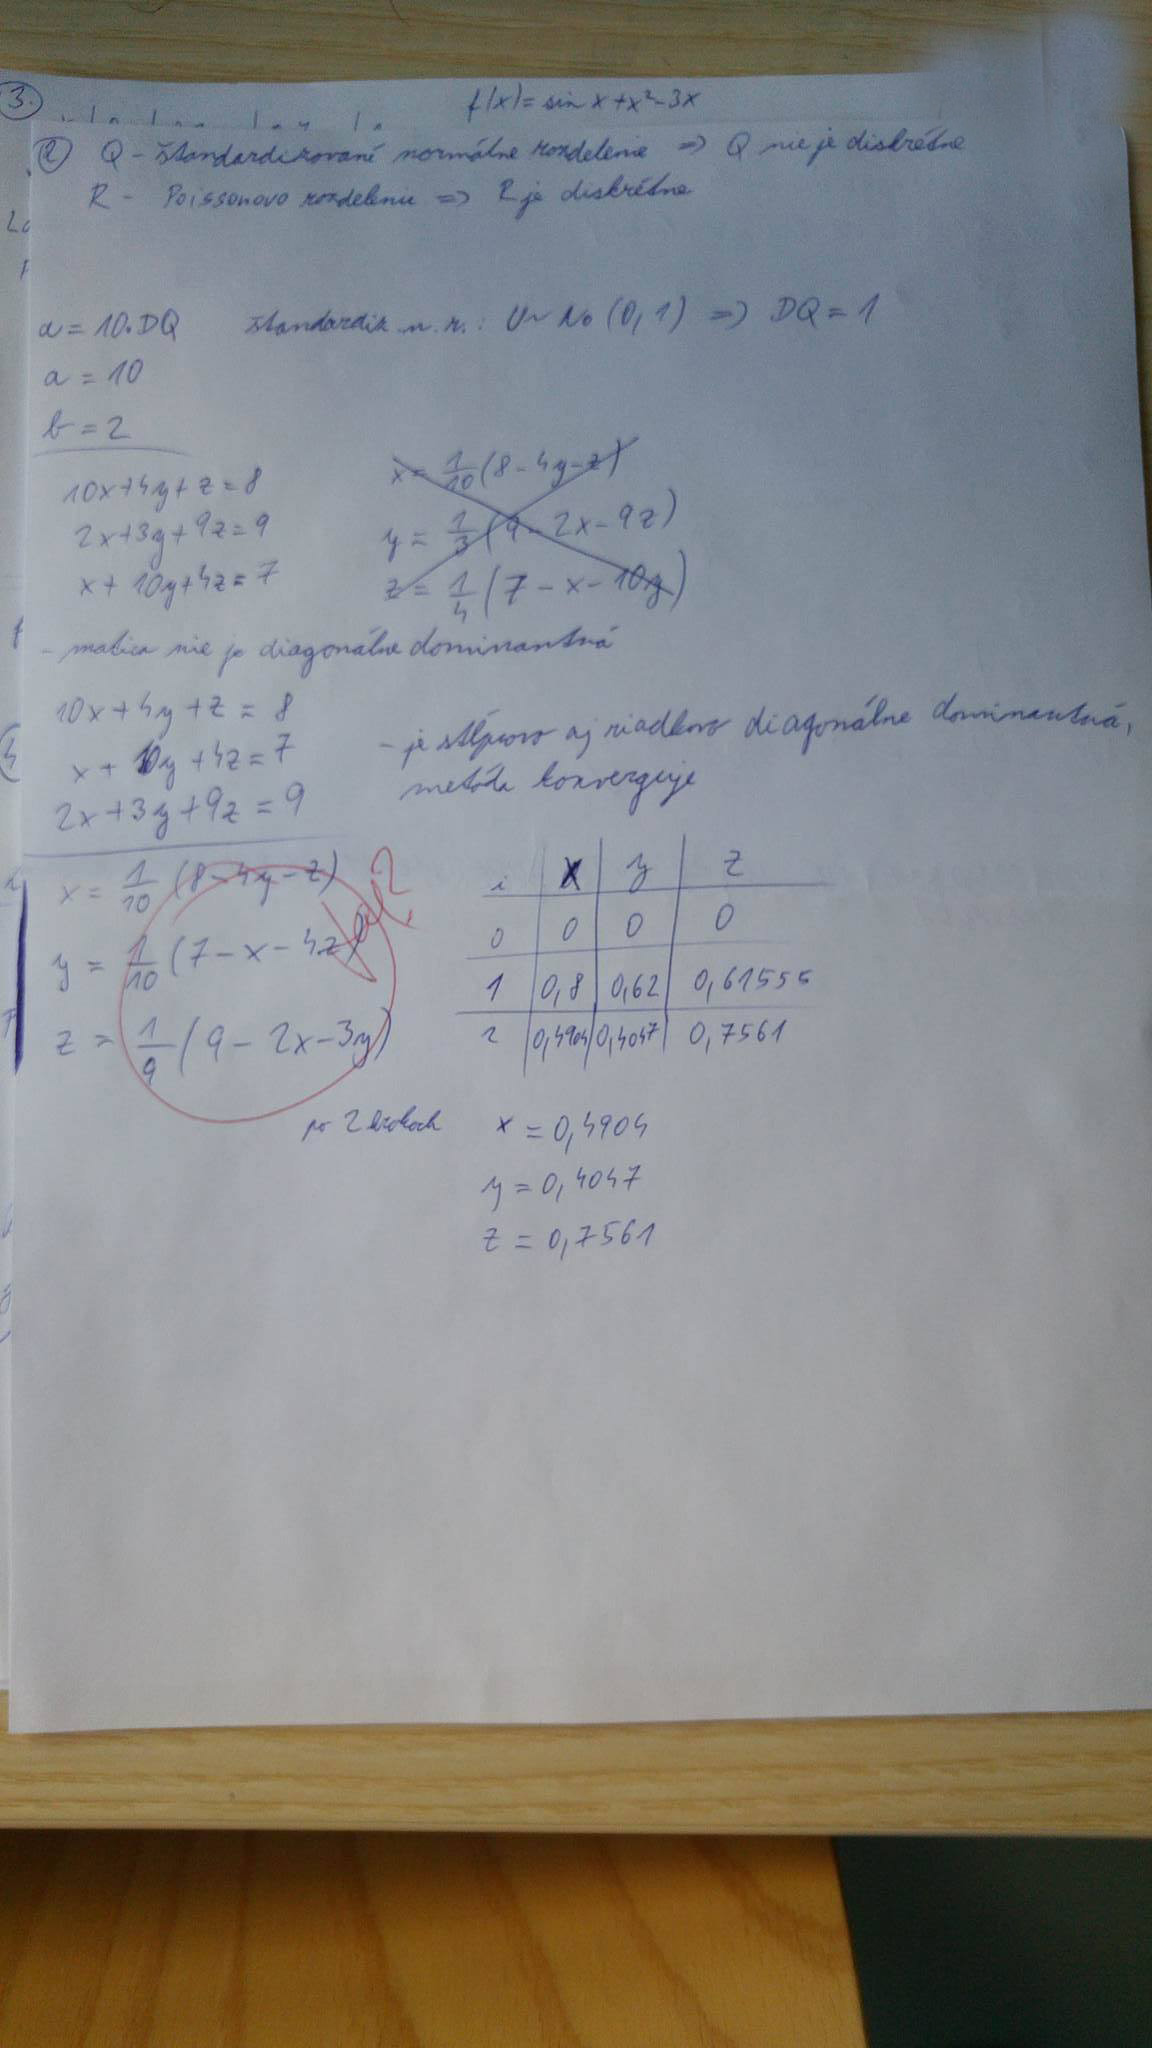 3.
f(x) = sin x + x² - 3x
2 Q - štandardizované normálne rozdelenie => Q nie je diskrétne
R - Poissonovo rozdelenie => R je diskrétne
a = 10·DQ štandardiz. n. r.: U ~ No (0,1) => DQ = 1
a = 10
b = 2
10x + 4y + z = 8
2x + 3y + 9z = 9
x + 10y + 4z = 7
x = 1/10 (8 - 4y - z)
y = 1/3 (9 - 2x - 9z)
z = 1/4 (7 - x - 10y)
- matica nie je diagonálne dominantná
10x + 4y + z = 8
x + 10y + 4z = 7
2x + 3y + 9z = 9
- je stĺpcovo aj riadkovo diagonálne dominantná,
metóda konverguje
x = 1/10 (8 - 4y - z)
y = 1/10 (7 - x - 4z)
z = 1/9 (9 - 2x - 3y)
i x y z
0 0 0 0
1 0,8 0,62 0,61555
2 0,4904 0,4047 0,7561
po 2 krokoch x = 0,4904
y = 0,4047
z = 0,7561